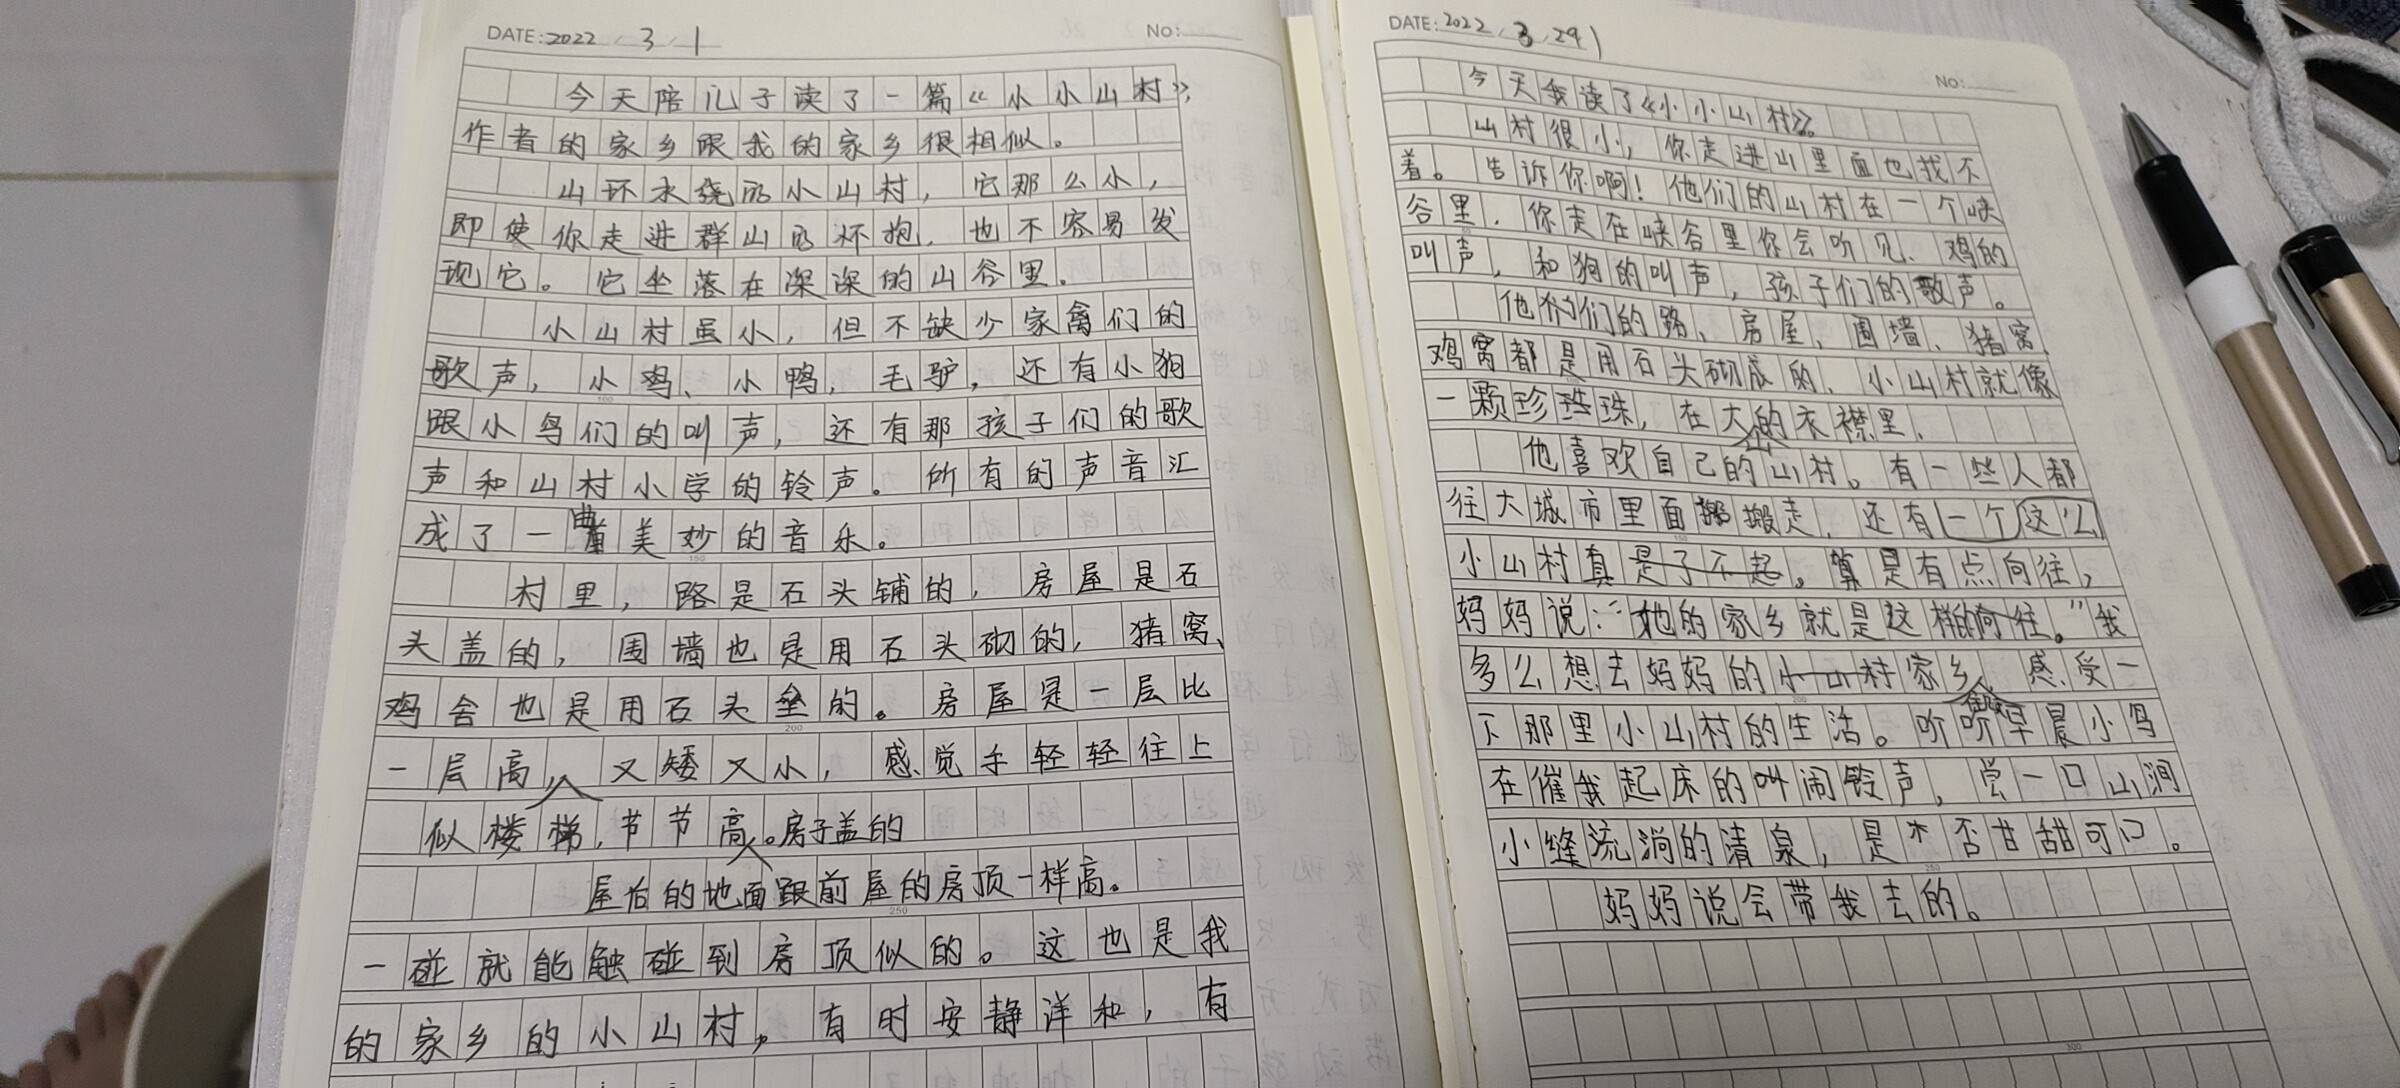 DATE: 2022 / 3 / 1 No:
今天陪儿子读了一篇《小小山村》,
作者的家乡跟我的家乡很相似。
山环水绕的小山村，它那么小，
即使你走进群山的怀抱，也不容易发
现它。它坐落在深深的山谷里.
小山村虽小，但不缺少家禽们的
歌声，小鸡、小鸭，毛驴，还有小狗
跟小鸟们的叫声，还有那孩子们的歌
声和山村小学的铃声。所有的声音汇
成了一曲美妙的音乐。
村里，路是石头铺的，房屋是石
头盖的，围墙也是用石头砌的，猪窝、
鸡舍也是用石头垒的。房屋是一层比
一层高，又矮又小，感觉手轻轻往上
似楼梯，节节高。房子盖的
屋后的地面跟前屋的房顶一样高。
一碰就能触碰到房顶似的。这也是我
的家乡的小山村，有时安静洋和，有
DATE: 2022 / 3 / 29 No:
今天我读了《小小山村》。
山村很小，你走进山里面也找不
着。告诉你啊！他们的山村在一个峡
谷里，你走在峡谷里你会听见、鸡的
叫声，和狗的叫声，孩子们的歌声。
他们的路、房屋、围墙、猪窝、
鸡窝都是用石头砌成的、小山村就像
一颗珍珠，在大山的衣襟里、
他喜欢自己的山村。有一些人都
往大城市里面搬走，还有一个这么
小山村真是了不起。真是有点向往，
妈妈说：“她的家乡就是这样的向往。”我
多么想去妈妈的小山村家乡，感受一
下那里小山村的生活。听听早晨小鸟
在催我起床的叫闹铃声，尝一口山涧
小缝流淌的清泉，是不否甘甜可口。
妈妈说会带我去的。